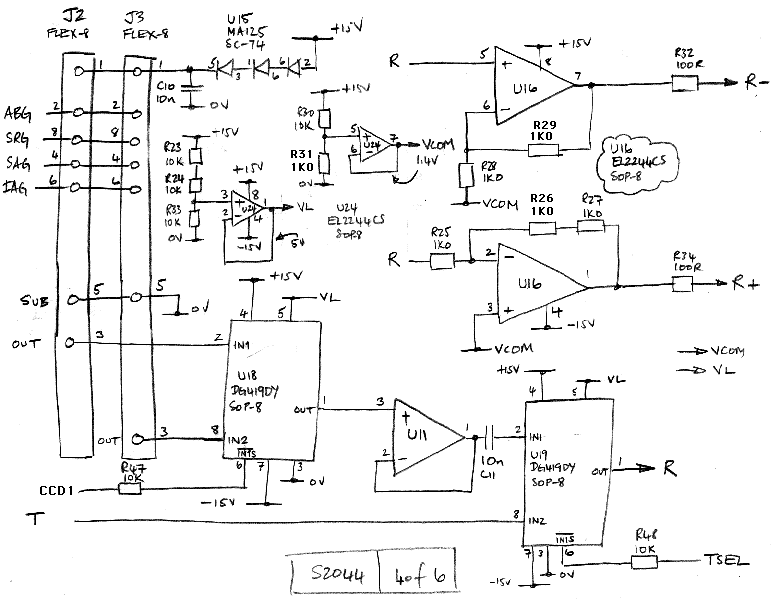 J2
FLEX-8
J3
FLEX-8
U15
MA125
SC-74
+15V
1
1
5
3
1
6
6
2
C10
10n
0V
ABG
2
2
SRG
8
8
SAG
4
4
IAG
6
6
-15V
R23
10K
R24
10K
R33
10K
0V
+15V
3
8
2
U24
1
VL
4
-15V
5V
+15V
R30
10K
R31
1K0
0V
5
6
U24
7
VCOM
1.4V
U24
EL2244CS
SOP8
R
5
+
+15V
8
U16
7
6
-
R29
1K0
R28
1K0
VCOM
R32
100R
R-
U16
EL2244CS
SOP-8
R
R25
1K0
R26
1K0
R27
1K0
2
-
U16
1
3
+
4
-15V
VCOM
R34
100R
R+
VCOM
VL
SUB
5
5
0V
OUT
3
+15V
4
5
VL
2
IN1
U18
DG419DY
SOP-8
OUT
1
OUT
3
8
IN2
INTS
6
7
3
0V
-15V
R47
10K
CCD1
3
+
U11
1
2
-
10n
C11
+15V
4
5
VL
2
IN1
U19
DG419DY
SOP-8
OUT
1
R
T
8
IN2
INTS
7
3
6
0V
-15V
R48
10K
TSEL
S2044
4 of 6